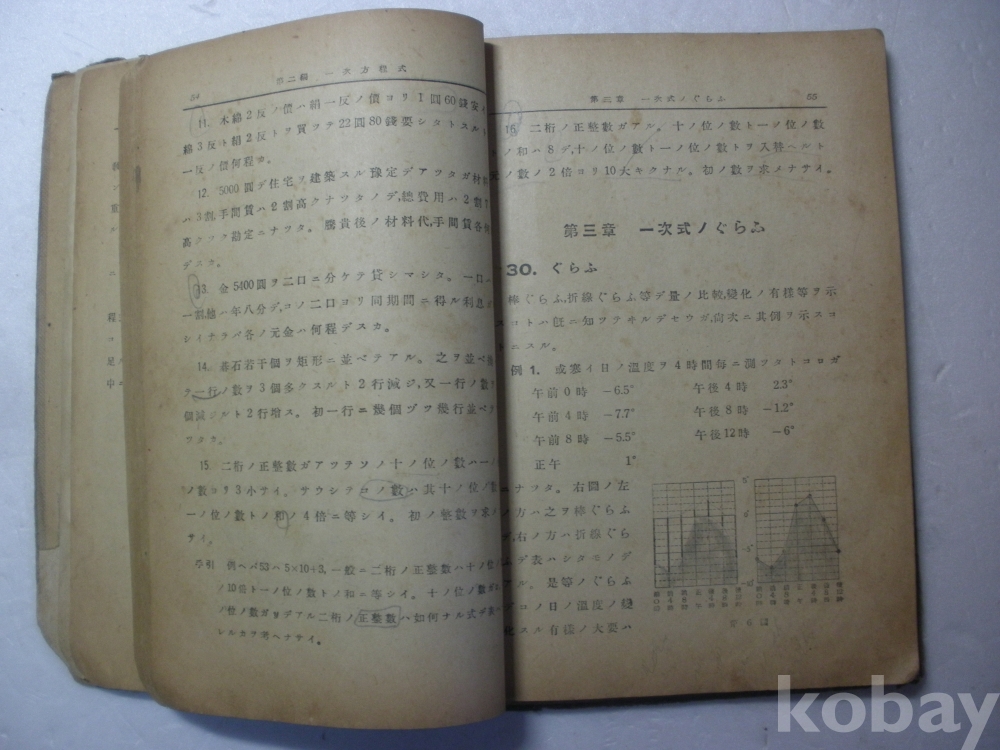 54
第二編 一次方程式
11. 木綿2反ノ價ハ絹一反ノ價ヨリ1圓60錢安
綿3反ト絹2反トヲ買ツテ22圓80錢要シタトスルト
一反ノ價何程カ。
12. 5000圓デ住宅ヲ建築スル豫定デアツタガ材料
ハ3割,手間賃ハ2割高クナツタノデ,總費用ハ2割
高クツク勘定ニナツタ。騰貴後ノ材料代,手間賃各
デスカ。
13. 金5400圓ヲ二口ニ分ケテ貸シマシタ。一口ハ
一割,他ハ年八分デ,コノ二口ヨリ同期間ニ得ル利息
シイナラバ各ノ元金ハ何程デスカ。
14. 碁石若干個ヲ矩形ニ並ベテアル。之ヲ並ベ
ラ一行ノ數ヲ3個多クスルト2行減ジ,又一行ノ數
個減ジルト2行增ス。初一行ニ幾個ヅツ幾行並ベ
ツタカ。
15. 二桁ノ正整數ガアツテソノ十ノ位ノ數ハ一
ノ數ヨリ3小サイ。サウシテコノ數ハ其十ノ位ノ數
一ノ位ノ數トノ和ノ4倍ニ等シイ。初ノ整數ヲ求
サイ。
手引 例ヘバ53ハ5×10+3,一般ニ二桁ノ正整數ハ十ノ位
ノ10倍ト一ノ位ノ數トノ和ニ等シイ。十ノ位ノ數ガ
ノ位ノ數ガyデアル二桁ノ正整數ハ如何ナル式デ表
レルカヲ考ヘナサイ。
第三章 一次式ノぐらふ
55
16. 二桁ノ正整數ガアル。十ノ位ノ數ト一ノ位ノ數
ノ和ハ8デ,十ノ位ノ數ト一ノ位ノ數トヲ入替ヘルト
ノ數ノ2倍ヨリ10大キクナル。初ノ數ヲ求メナサイ。
第三章 一次式ノぐらふ
30. ぐらふ
棒ぐらふ,折線ぐらふ等デ量ノ比較,變化ノ有樣等ヲ示
スコトハ旣ニ知ツテヰルデセウガ,尙次ニ其例ヲ示スコ
トニスル。
例1. 或寒イ日ノ溫度ヲ4時間每ニ測ツタトコロガ
午前0時 −6.5° 午後4時 2.3°
午前4時 −7.7° 午後8時 −1.2°
午前8時 −5.5° 午後12時 −6°
正午 1°
ナツタ。右圖ノ左
ノ方ハ之ヲ棒ぐらふ
,右ノ方ハ折線ぐら
デ表ハシタモノデ
アル。是等ノぐらふ
デコノ日ノ溫度ノ變
化スル有樣ノ大要ハ
第6圖
kobay